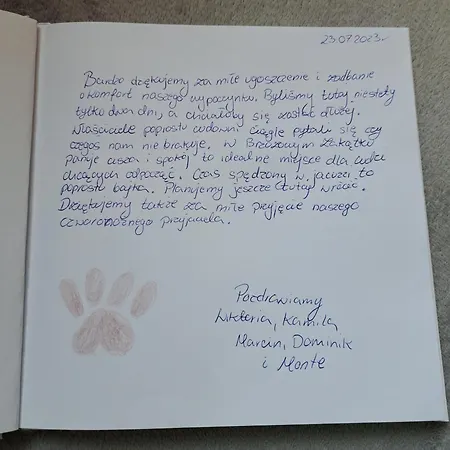 23.07.2023r.
Bardzo dziękujemy za miłe ugoszczenie i zadbanie
o komfort naszego wypoczynku. Byliśmy tutaj niestety
tylko dwa dni, a chciałoby się zostać dłużej.
Właściciele poprostu cudowni ciągle pytali się czy
czegoś nam nie brakuje. W Brzozowym Zakątku
panuje cisza i spokój to idealne miejsce dla ludzi
chcących odpocząć. Czas spędzony w jacuzzi to
poprostu bajka. Planujemy jeszcze tutaj wrócić.
Dziękujemy także za miłe przyjęcie naszego
czworonożnego przyjaciela.
Pozdrawiamy
Wiktoria, Kamila
Marcin, Dominik
i Monte